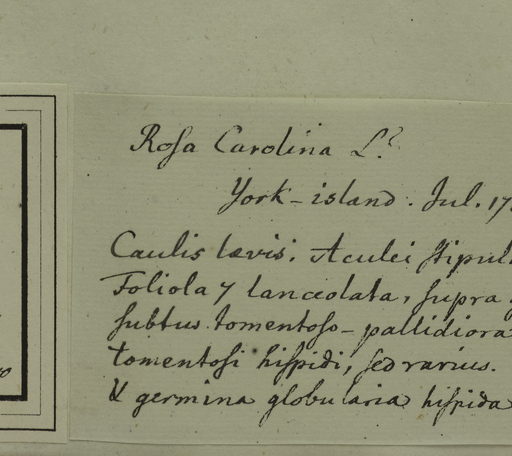 Rosa Carolina L.?
York-island. Jul. 17
Caulis lævis. Aculei stipul
Foliola 7 lanceolata, supra
subtus tomentoso-pallidiora
tomentosi hispidi, sed rarius.
& germina globularia hispida